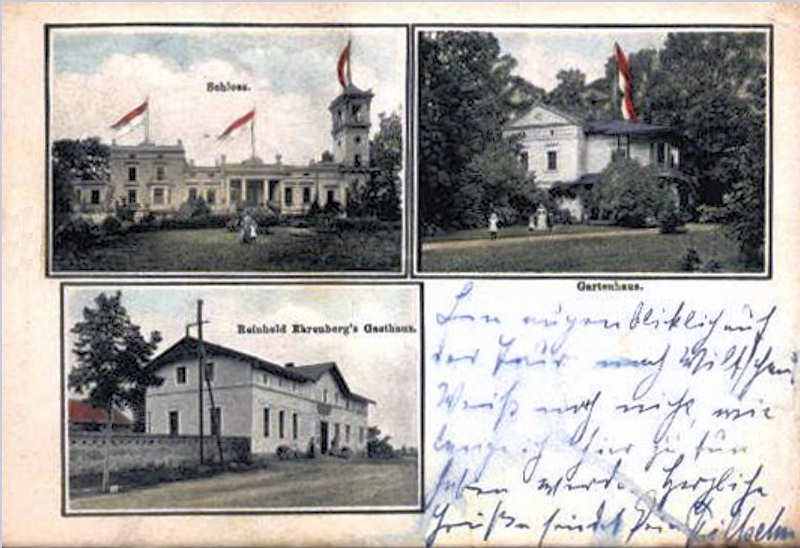 Schloss.
Gartenhaus.
Reinhold Ehrenberg's Gasthaus.
Bin augenblicklich auf
der Tour nach
Weiß noch nicht, wie
lange ich hier zu tun
haben werde. Herzliche
Grüße sendet Dein Wilhelm